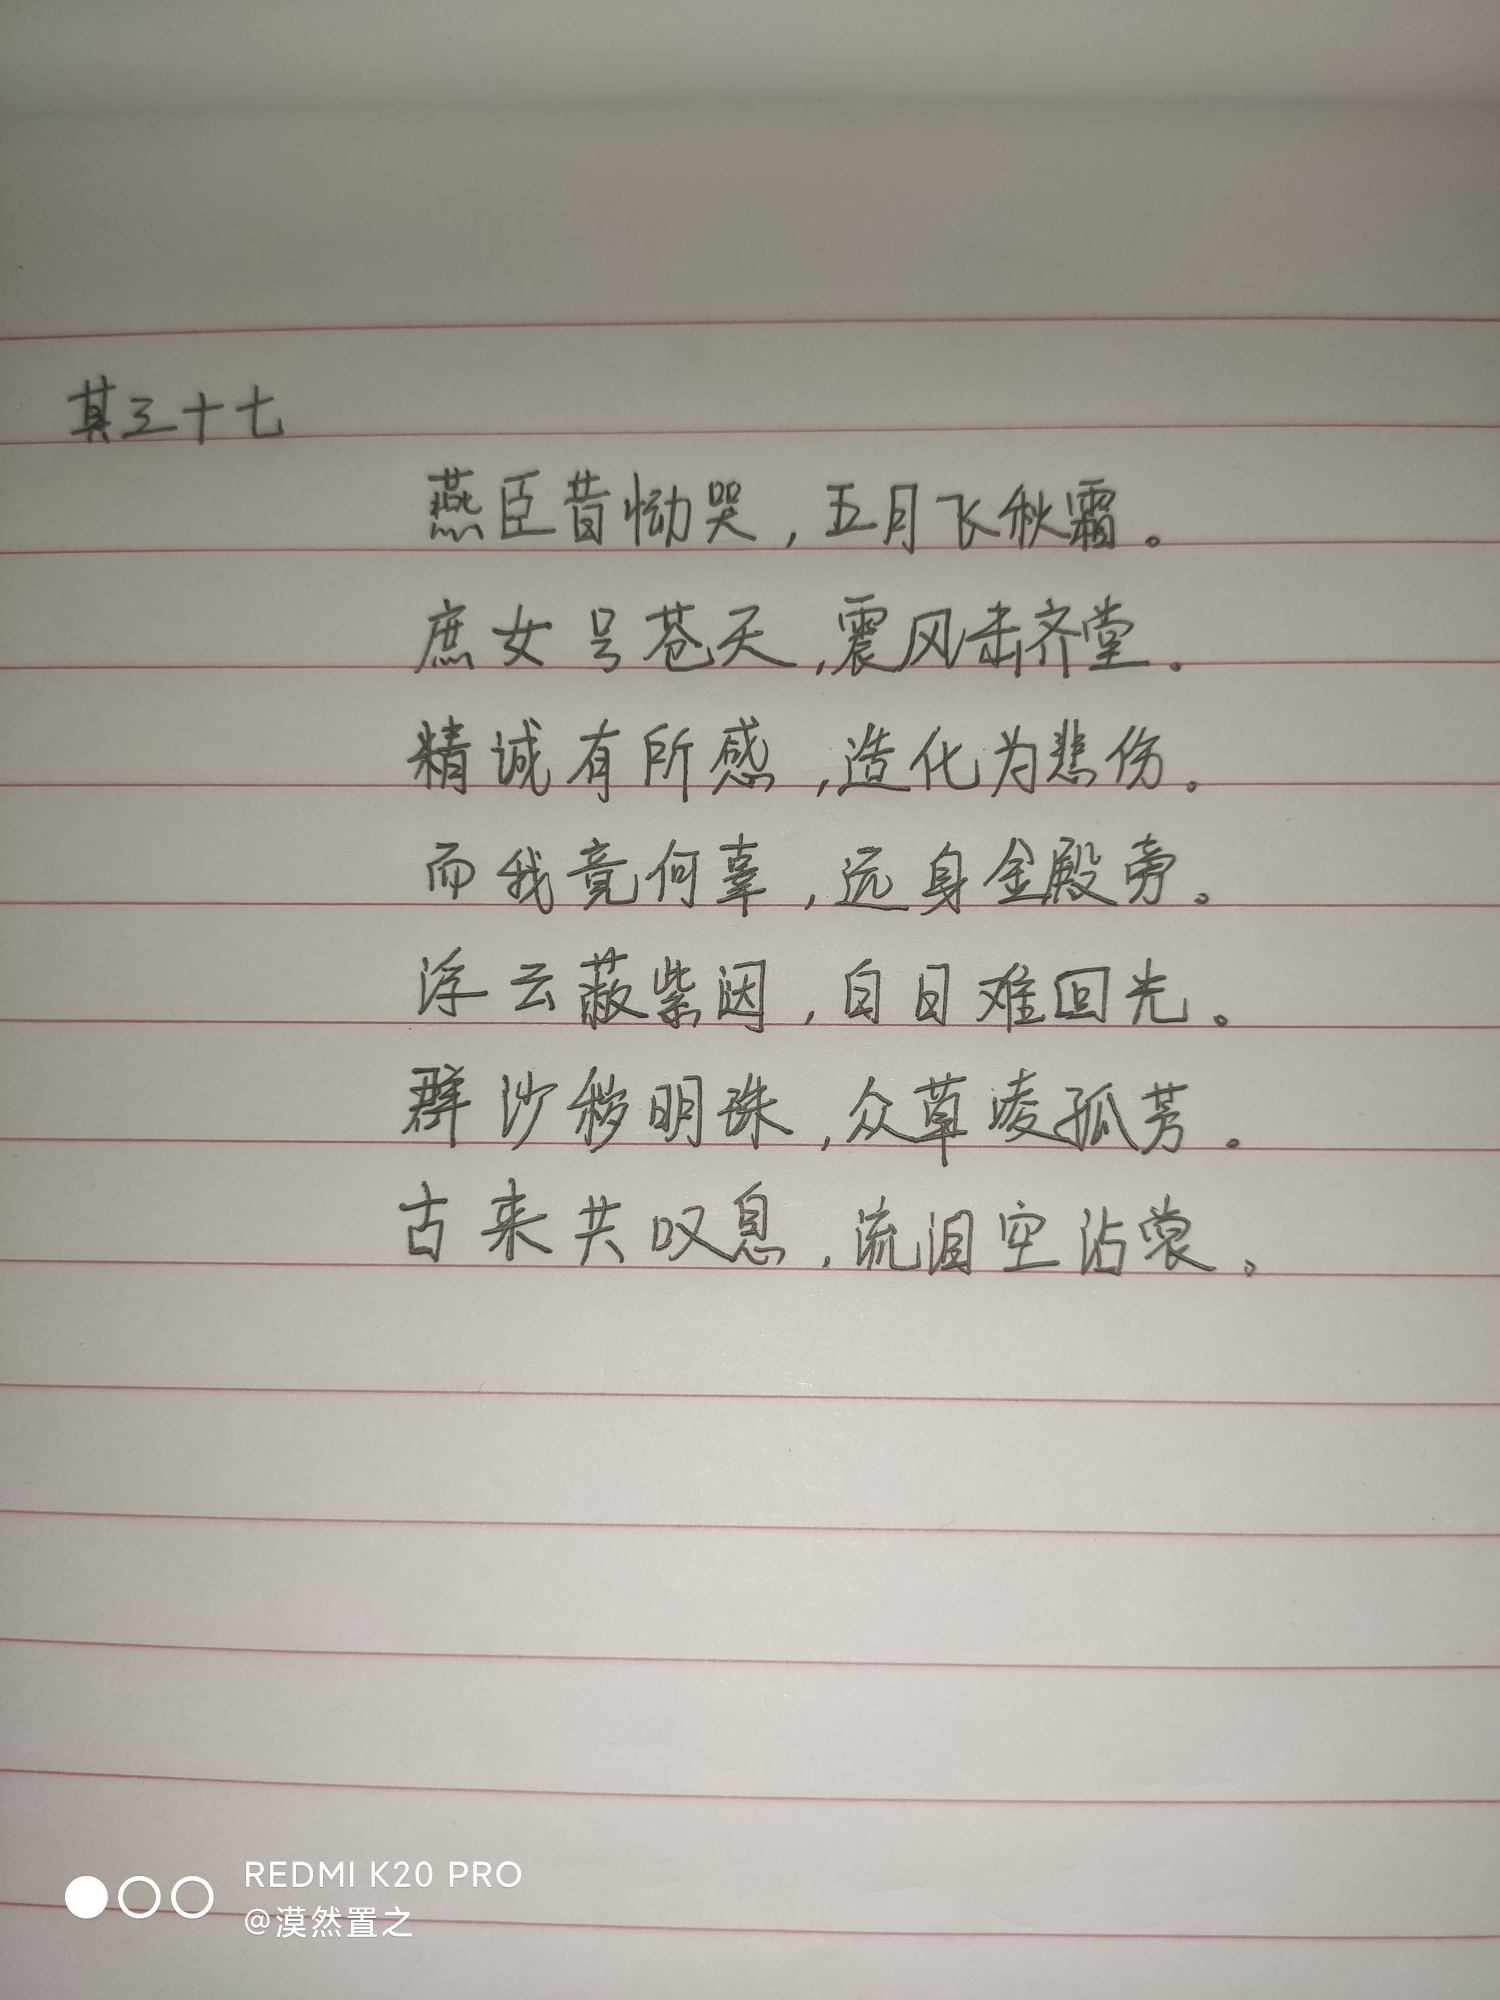 其三十七
燕臣昔恸哭，五月飞秋霜。
庶女号苍天，震风击齐堂。
精诚有所感，造化为悲伤。
而我竟何辜，远身金殿旁。
浮云蔽紫闼，白日难回光。
群沙秽明珠，众草凌孤芳。
古来共叹息，流泪空沾裳。
REDMI K20 PRO
@漠然置之